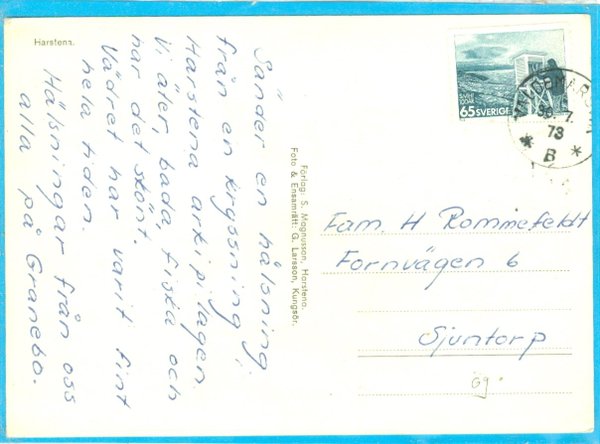 Harstena.
Sänder en hälsning
från en kryssning i
Harstena arkipilagen.
Vi äter, bada, fiska och
har det skönt.
Vädret har varit fint
hela tiden.
Hälsningar från oss
alla på Granebo.
Förlag: S. Magnusson, Harstena.
Foto & Ensamrätt: G. Larsson, Kungsör.
65 SVERIGE
30.7.
73
* B *
Fam. H Rommefeldt
Fornvägen 6
Sjuntorp
69.